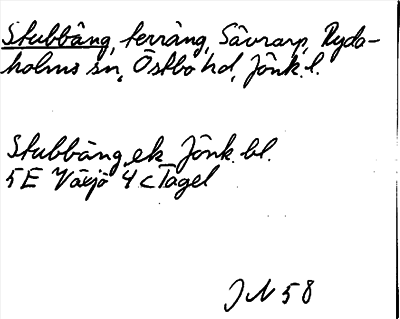 Stubbäng, terräng, Såvrarp, Rydaholms sn, Östbo hd, Jönk. l.
Stubbäng ek. Jönk. bl.
5 E Växjö 4 c Tagel
JN 58